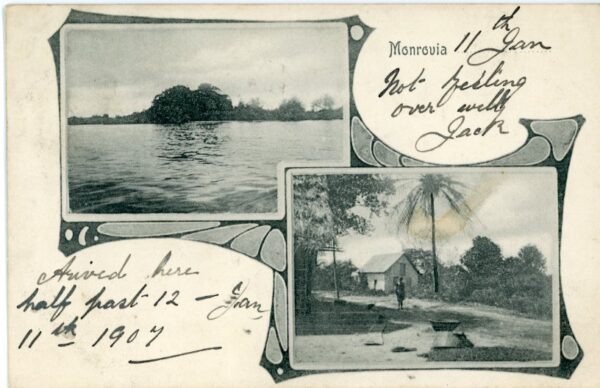 Monrovia 11th Jan
Not feeling
over well
Jack
Arived here
half past 12 - Jan
11th 1907